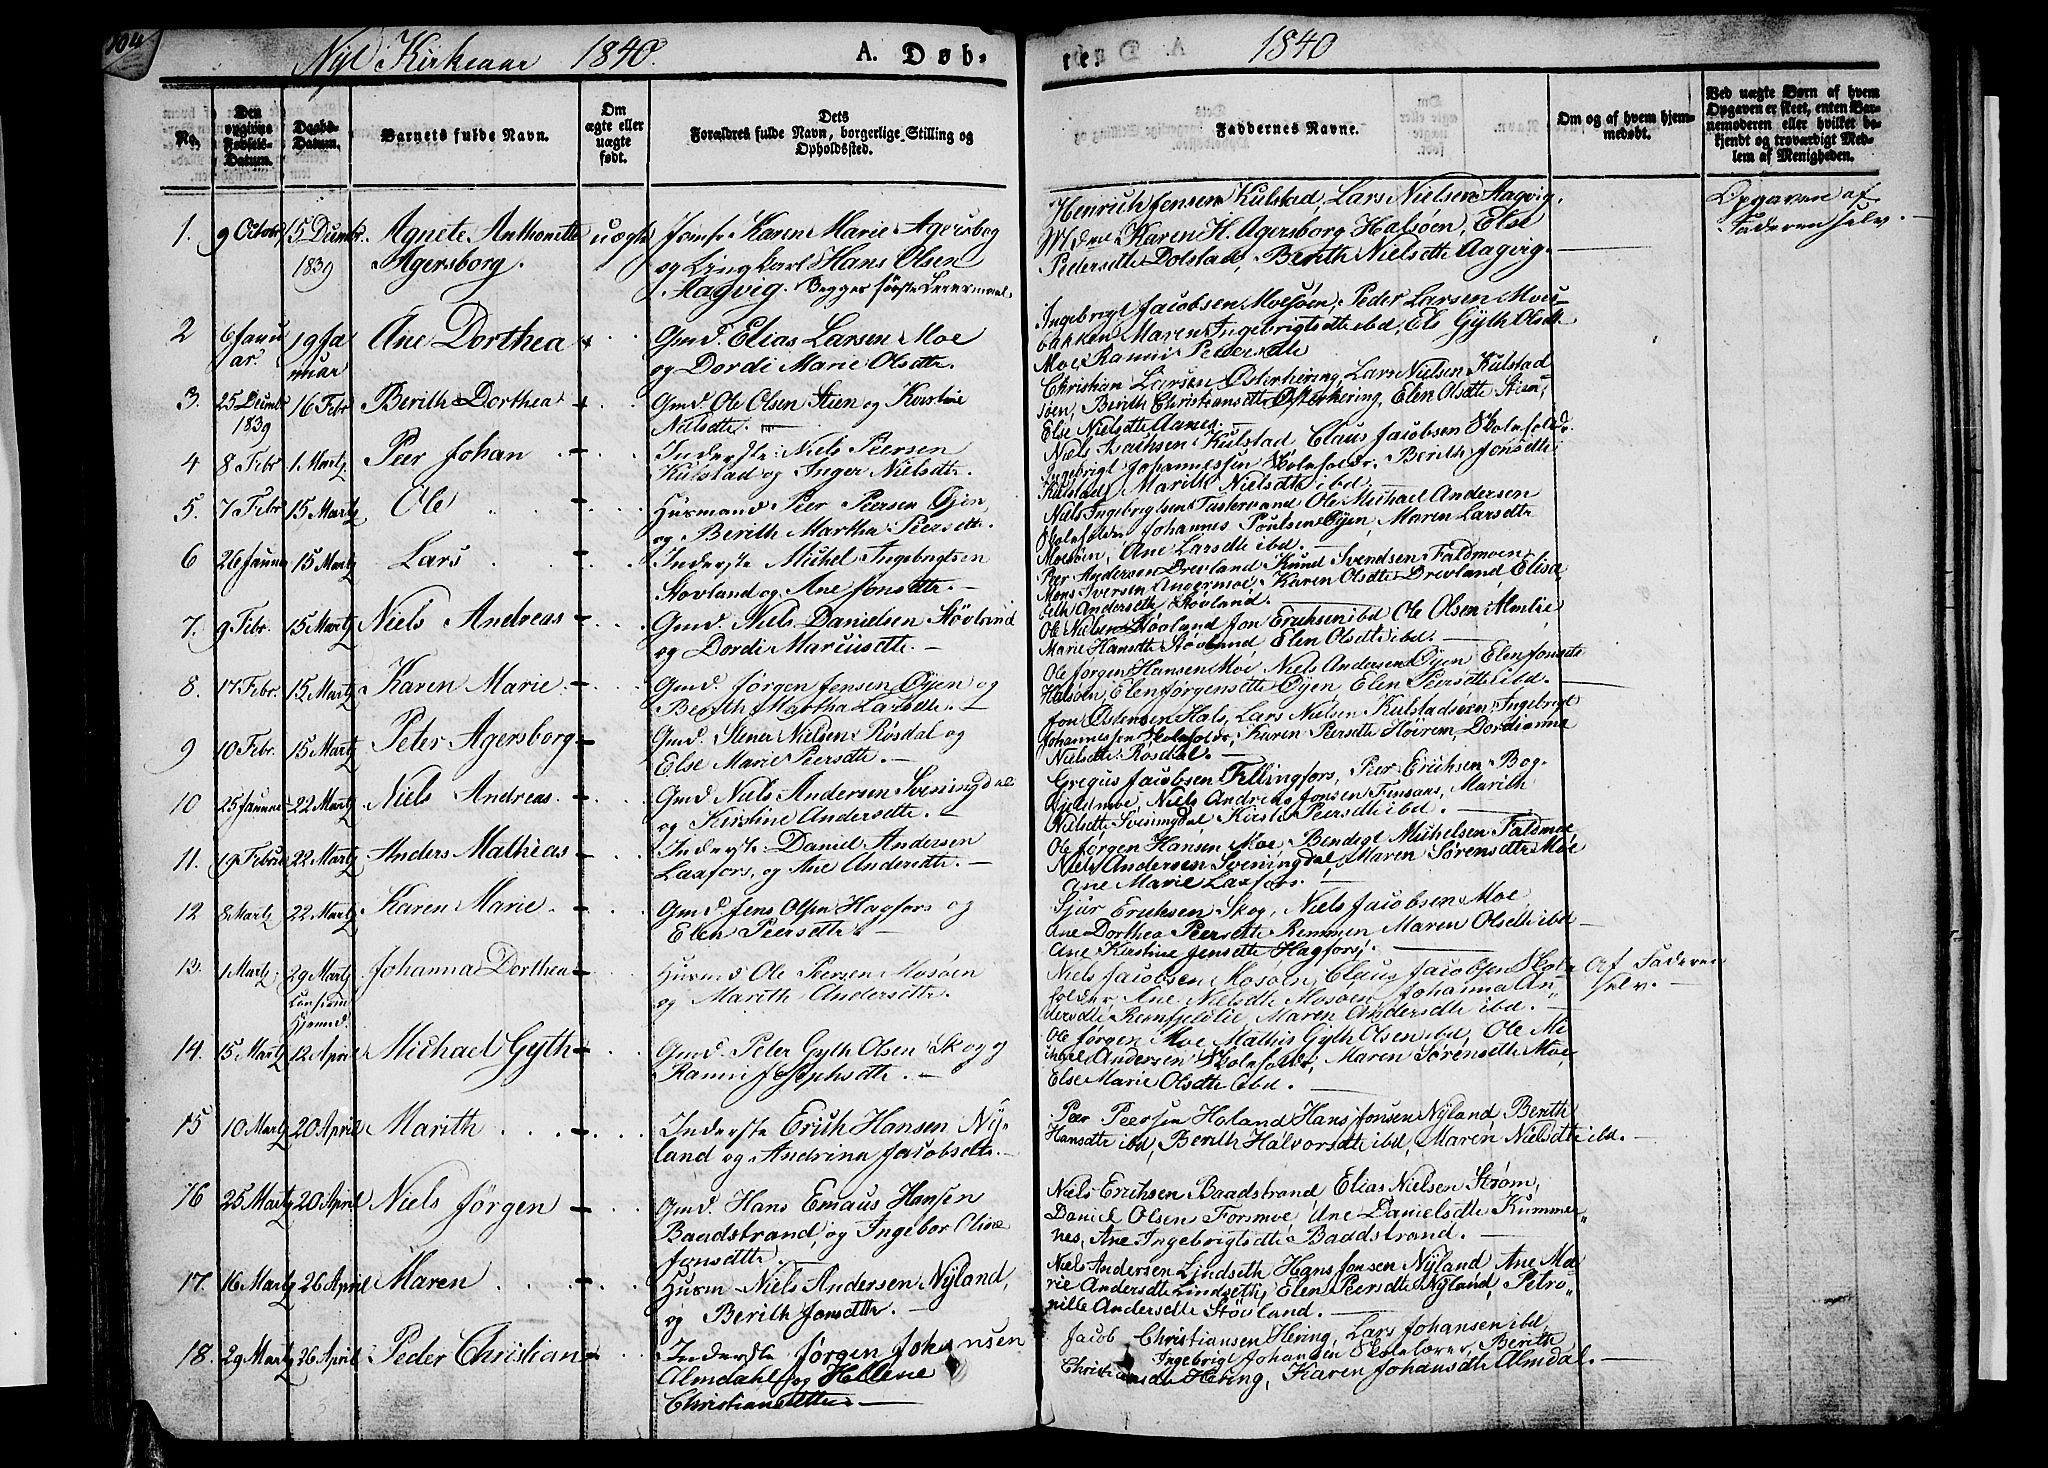 104
Nyt Kirkeaar 1840. A. Døb-
te. 1840
No.
Den opgivne Fødsels-Datum.
Daabs-Datum.
Barnets fulde Navn.
Om ægte eller uægte født.
Dets Forældres fulde Navn, borgerlige Stilling og Opholdssted.
Faddernes Navne.
Om og af hvem hjemmedøbt.
Ved uægte Børn af hvem Opgaven er skeet, enten Barnemoderen eller hvilket bekjendt og troværdigt Medlem af Menigheden.
1. 9 Octobr 15 Decmbr. 1839 Agnete Anthonette Agersborg. uægte
Jomfr. Karen Marie Agersborg
og Ungkarl Hans Olsen
Aagvig. Begges første Leiermaal.
Henrich Jensen Kulstad, Lars Nielsen Aagvig,
Md. Karen H. Agersborg Halsøen, Else
Pedersdtr Dolstad, Berith Nielsdtr Aagvig.
Opgaven af
Faderen selv.
2 6 Januar. 19 Januar Ane Dorthea
Gmd. Elias Larsen Moe
og Dordi Marie Olsdtr.
Ingebrigt Jacobsen Moesøen, Peder Larsen Moes-
bakken Maren Ingebrigtsdtr ibd, Els Gyth Olsdtr
Moe, Ranni Pedersdtr
3. 25 Decmbr 1839 16 Febr Berith Dorthea
Gmd. Ole Olsen Steen og Kirstine
Nielsdtr.
Christian Larsen Østerhering, Lars Nielsen Kulstad-
søen, Berith Christiansdtr Østerhering, Elen Olsdtr Steen,
Else Nielsdtr Aanes.
4 8 Febr 1 Martz Peer Johan
Inderste Niels Peersen
Kulstad og Inger Nielsdtr.
Niels Isachsen Kulstad Claus Jacobsen Skoleholdr.
Ingebrigt Johannessen Skoleholdr. Berith Jonsdtr
Kulstad, Marith Nielsdtr ibd
5. 7 Febr 15 Martz Ole
Husmand Peer Peersen Øjen,
og Berith Martha Peersdtr.
Niels Ingebrigtsen Tustervand Ole Michael Andersen
Skoleholdr Johannes Poulsen Øyen, Maren Larsdtr
Moesøen, Ane Larsdtr ibd.
6 26 Januar 15 Martz Lars
Inderste Michel Ingebrigtsen
Stovland og Ane Jonsdtr.
Peer Andersen Drevland Knud Svendsen Faldmoen
Mons Iversen Angermoe, Karen Olsdtr Drevland Elisa-
beth Andersdtr Støvland.
7. 9 Febr. 15 Martz Niels Andreas
Gmd. Niels Danielsen Støvland
og Dordi Marcusdtr.
Ole Nielsen Støvland Jon Erichsen ibd Ole Olsen Almlie
Marie Hansdtr Støvland Elen Olsdtr ibd.
8. 17 Febr. 15 Martz Karen Marie.
Gmd. Jørgen Jensen Øyen og
Berith Martha Larsdtr.
Ole Jørgen Hansen Moe Niels Andersen Øyen Elen Jonsdtr
Halsøen, Elen Jørgensdtr Øyen, Elen Peersdtr ibd.
9 10 Febr. 15 Martz Peter Agersborg
Gmd. Stener Nielsen Røsdal og
Else Marie Peersdtr.
Jon Østensen Hals, Lars Nielsen Kulstadsøen, Ingebrigt
Johannessen Skoleholdr, Karen Peersdtr Høirem, Dordianna
Nielsdtr Røsdal.
10 25 Januar 22 Martz Niels Andreas.
Gmd. Niels Andersen Sveningdal
og Kirstine Andersdtr.
Gregus Jacobsen Fellingfors, Peer Erichsen Bog-
fieldmoe, Niels Andreas Jonsen Finsaas, Marith
Nielsdtr Sveningdal Kirste Peersdtr ibd.
11. 19 Februar 22 Martz Anders Mathias
Inderste Daniel Andersen
Laxfors, og Ane Andersdtr.
Ole Jørgen Hansen Moe Bendegt Michelsen Faldmoe
Niels Andersen Sveningdal, Maren Sørensdtr Moe
Ane Marie Laxfors.
12 8 Martz 22 Martz Karen Marie.
Gmd Jens Olsen Hagfors og
Elen Peersdtr.
Sjur Erichsen Skog, Niels Jacobsen Moe,
Ane Dorthea Peersdtr Remmen Maren Olsdtr ibd
Ane Kirstine Jensdtr Hagfors.
13. 1 Martz 29 Martz Johanna Dorthea
Husmd Ole Peersen Mosøen
og Marith Andersdtr.
Niels Jacobsen Mosøen, Claus Jacobsen Skole
holder, Ane Nielsdtr Mosøen Johanna An-
dersdtr Remfjeldlie, Maren Andersdtr ibd.
Af Faderen
selv.
14. 15 Martz 12 April Michael Gyth
Gmd. Peter Gyth Olsen Skog og
Ranni Josephsdtr.
Ole Jørgen Moe Mathis Gyth Olsen ibd, Ole Mi-
chael Andersen Skoleholdr, Maren Sørensdtr Moe,
Else Marie Olsdtr ibd.
15 10 Martz 20 April Marith
Inderste Erich Hansen Ny-
land og Andrina Jacobsdtr.
Peer Peersen Holand Hans Jonsen Nyland Berith
Hansdtr ibd, Berith Halvorsdtr ibd, Maren Nielsdtr ibd.
16 25 Martz 20 April Niels Jørgen
Gmd. Hans Emaus Hansen
Baadstrand, og Ingebor Oline
Jonsdtr.
Niels Erichsen Baadstrand, Elias Nielsen Strøm,
Daniel Olsen Forsmoe, Ane Danielsdtr Kummer-
nes, Ane Ingebrigtsdtr Baadstrand.
17. 16 Martz 26 April Maren
Husm Niels Andersen Nyland,
og Berith Jonsdtr.
Niels Andersen Lindseth Hans Jonsen Nyland Ane Ma-
rie Andersdtr Lindseth, Elen Peersdtr Nyland, Petro-
nille Andersdtr Støvland.
18. 29 Martz 26 April Peder Christian
Inderste Jørgen Johansen
Almdahl og Hellene
Christiansdtr
Jacob Christiansen Hering, Lars Johansen ibd,
Ingebrigt Johansen Skolelærer, Berith
Christiansdtr Hering, Karen Johansdtr Almdal.